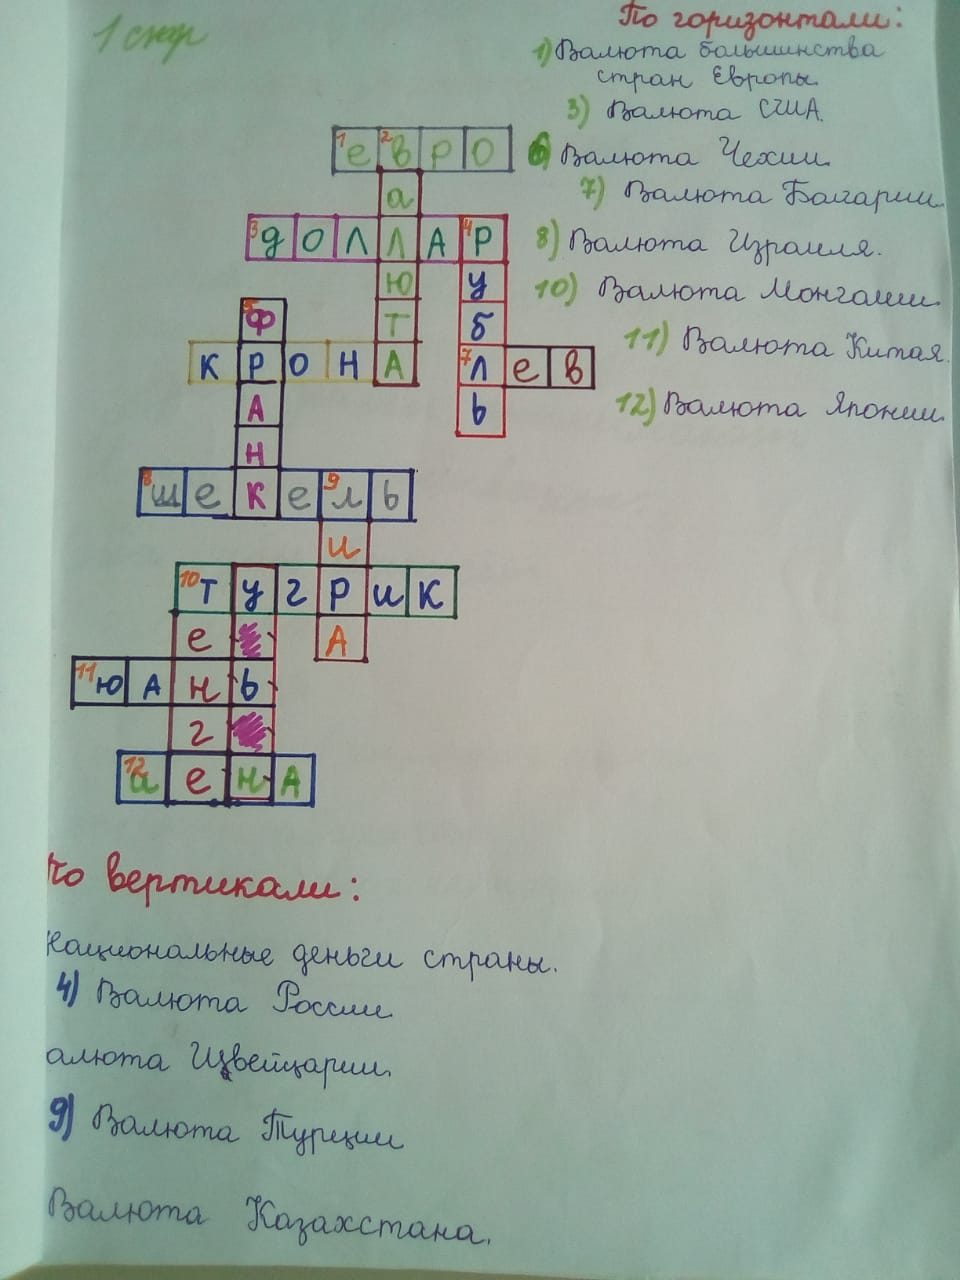 1 стр
По горизонтали:
1) Валюта большинства
стран Европы.
3) Валюта США.
6) Валюта Чехии.
7) Валюта Болгарии.
8) Валюта Израиля.
10) Валюта Монголии.
11) Валюта Китая.
12) Валюта Японии.
1 е 2 в р о
а
3 д о л л а 4 р
ю у
5 ф т б
к р о н а 7 л е в
а ь
н
8 ш е к е 9 л ь
и
10 т у г р и к
е а
11 ю а н ь
г
12 и е н а
По вертикали:
национальные деньги страны.
4) Валюта России
алюта Швейцарии.
9) Валюта Турции
Валюта Казахстана.